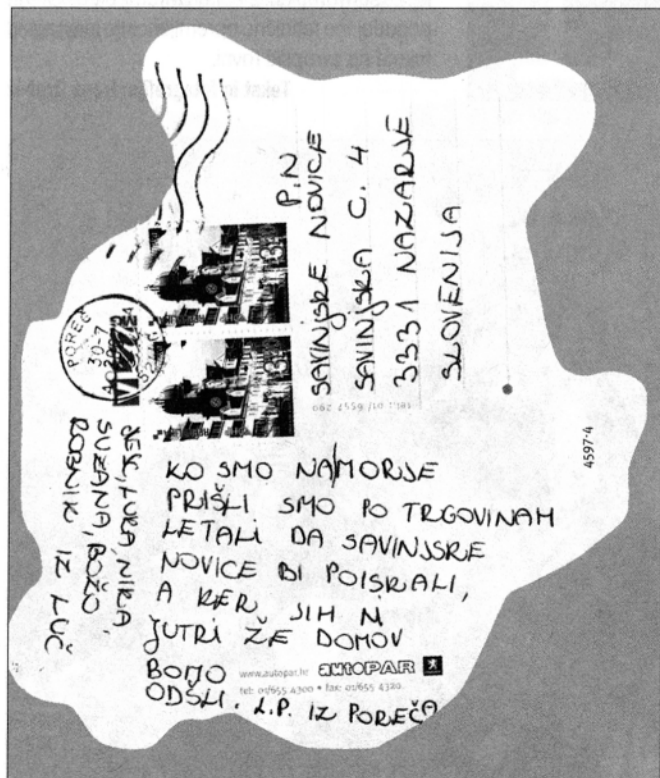 P.N
SAVINJSKE NOVICE
SAVINJSKA C. 4
3331 NAZARJE
SLOVENIJA
POREČ
30-7
KO SMO NA MORJE
PRIŠLI SMO PO TRGOVINAH
LETALI DA SAVINJSKE
NOVICE BI POISKALI,
A KER JIH N
JUTRI ŽE DOMOV
BOMO
ODŠLI. L.P. IZ POREČA
LUKA, NIKA,
SUZANA, BOŽO
ROBNIK IZ LUČ
www.autopar.hr autoPAR
tel: 01/655 4300 • fax: 01/655 4320
4597-4